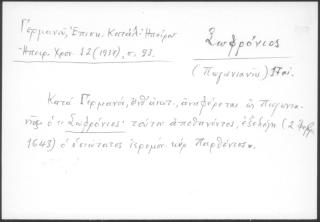 Γερμανοῦ, Ἐπισκ. Κατάλ. Ἠπείρου
Ἠπειρ. Χρον. 12 (1937), σ. 93.
Σωφρόνιος
(Πωγωνιανῆς) 17 αἰ.
Κατὰ Γερμανό, ἔνθ' ἀνωτ., ἀναφέρεται ὡς Πωγωνια-
νῆς ὁ Σωφρόνιος· τούτου ἀποθανόντος, ἐξελέγη (2
1643) ὁ ὁσιώτατος ἱερομ. κὺρ Παρθένιος».